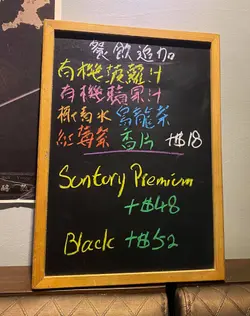 餐飲追加
有機菠蘿汁
有機蘋果汁
椰青水 烏龍茶
紅莓茶 香片 +$18
Suntory Premium
+$48
Black +$52